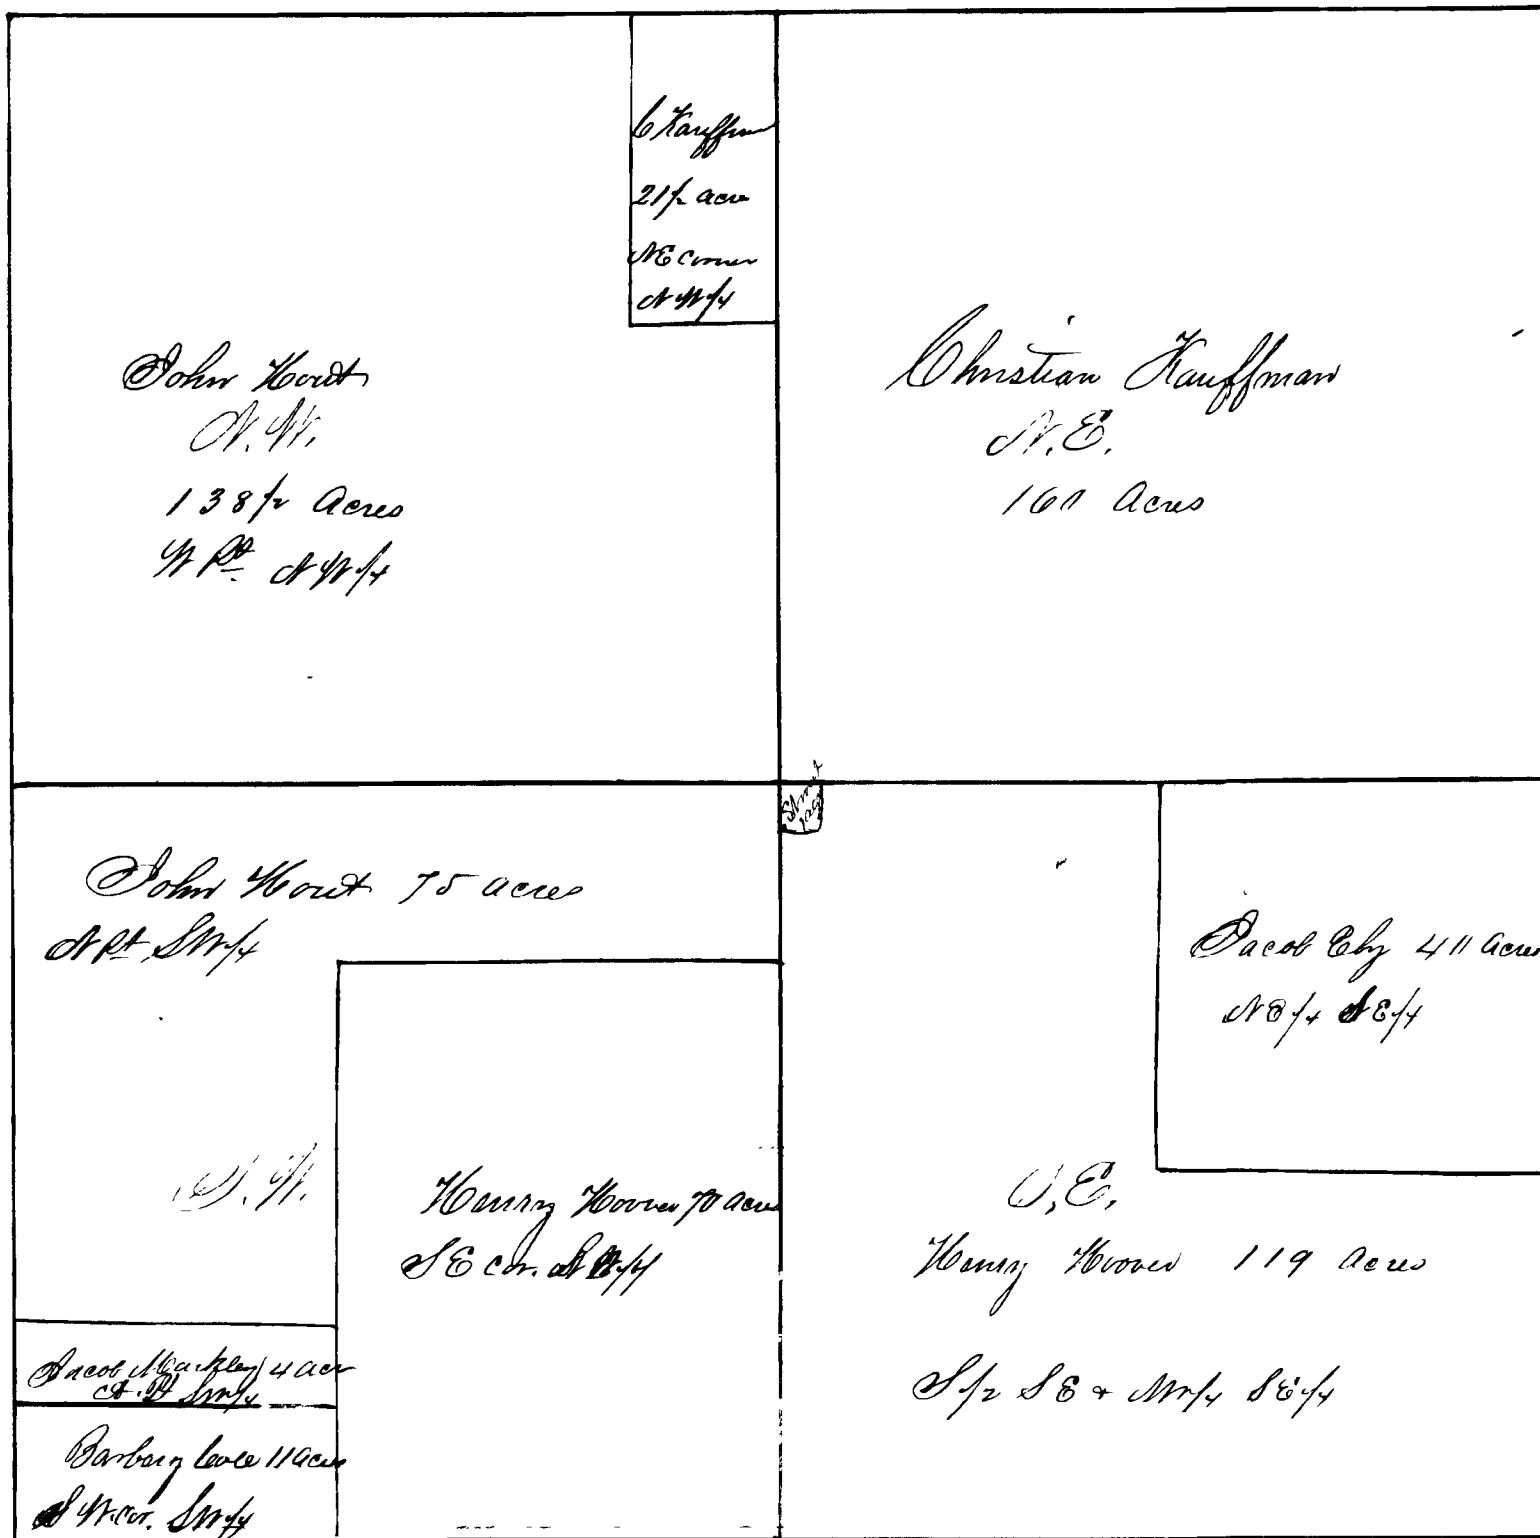 C Kauffman
21½ acre
NE corner
NW¼
John Hout
N.W.
138½ Acres
W Pt. NW¼
Christian Kauffman
N.E.
160 Acres
John Hout 75 acres
N Pt SW¼
S.W.
Henry Hoover 70 acres
SE cor. SW¼
Jacob Mackley 4 acr
Pt SW¼
Barbary Cole 11 acre
S W. cor. SW¼
Jacob Eby 40 acres
NE¼ SE¼
S.E.
Henry Hoover 119 acres
S½ SE & NW¼ SE¼